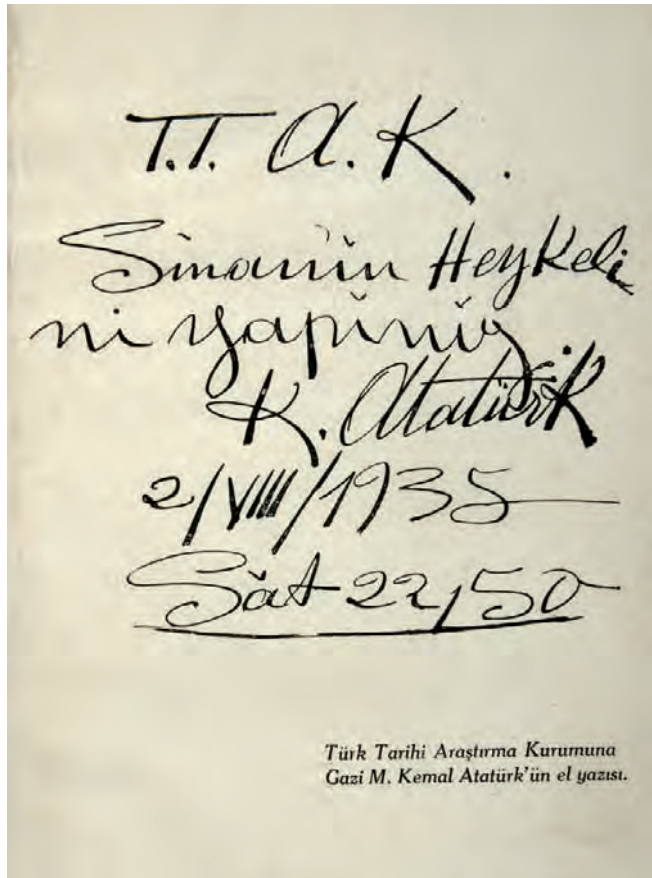 T.T. A. K.
Sinan'ın Heykeli
ni yapınız.
K. Atatürk
2/VIII/1935
Sǎat 22,50
Türk Tarihi Araştırma Kurumuna
Gazi M. Kemal Atatürk'ün el yazısı.